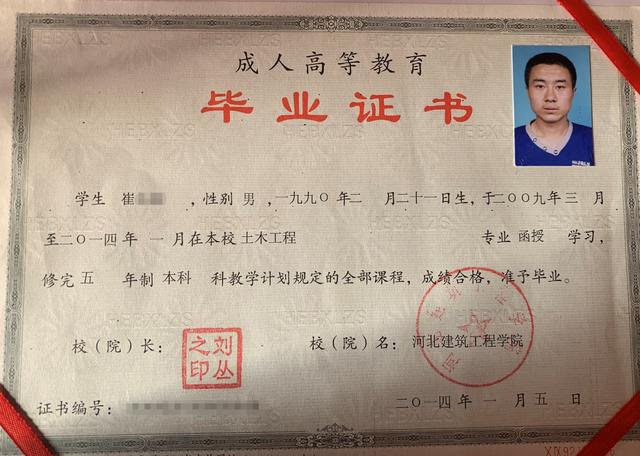 成人高等教育
毕业证书
学生 崔 ，性别 男 ，一九九〇 年 二 月 二十一日生，于二〇〇九年 三 月
至二〇一四年 一 月在本校 土木工程 专业 函授 学习，
修完 五 年制 本科 科教学计划规定的全部课程，成绩合格，准予毕业。
校（院）长： 刘丛之印 校（院）名： 河北建筑工程学院
证书编号： 二〇一四年 一 月 五 日